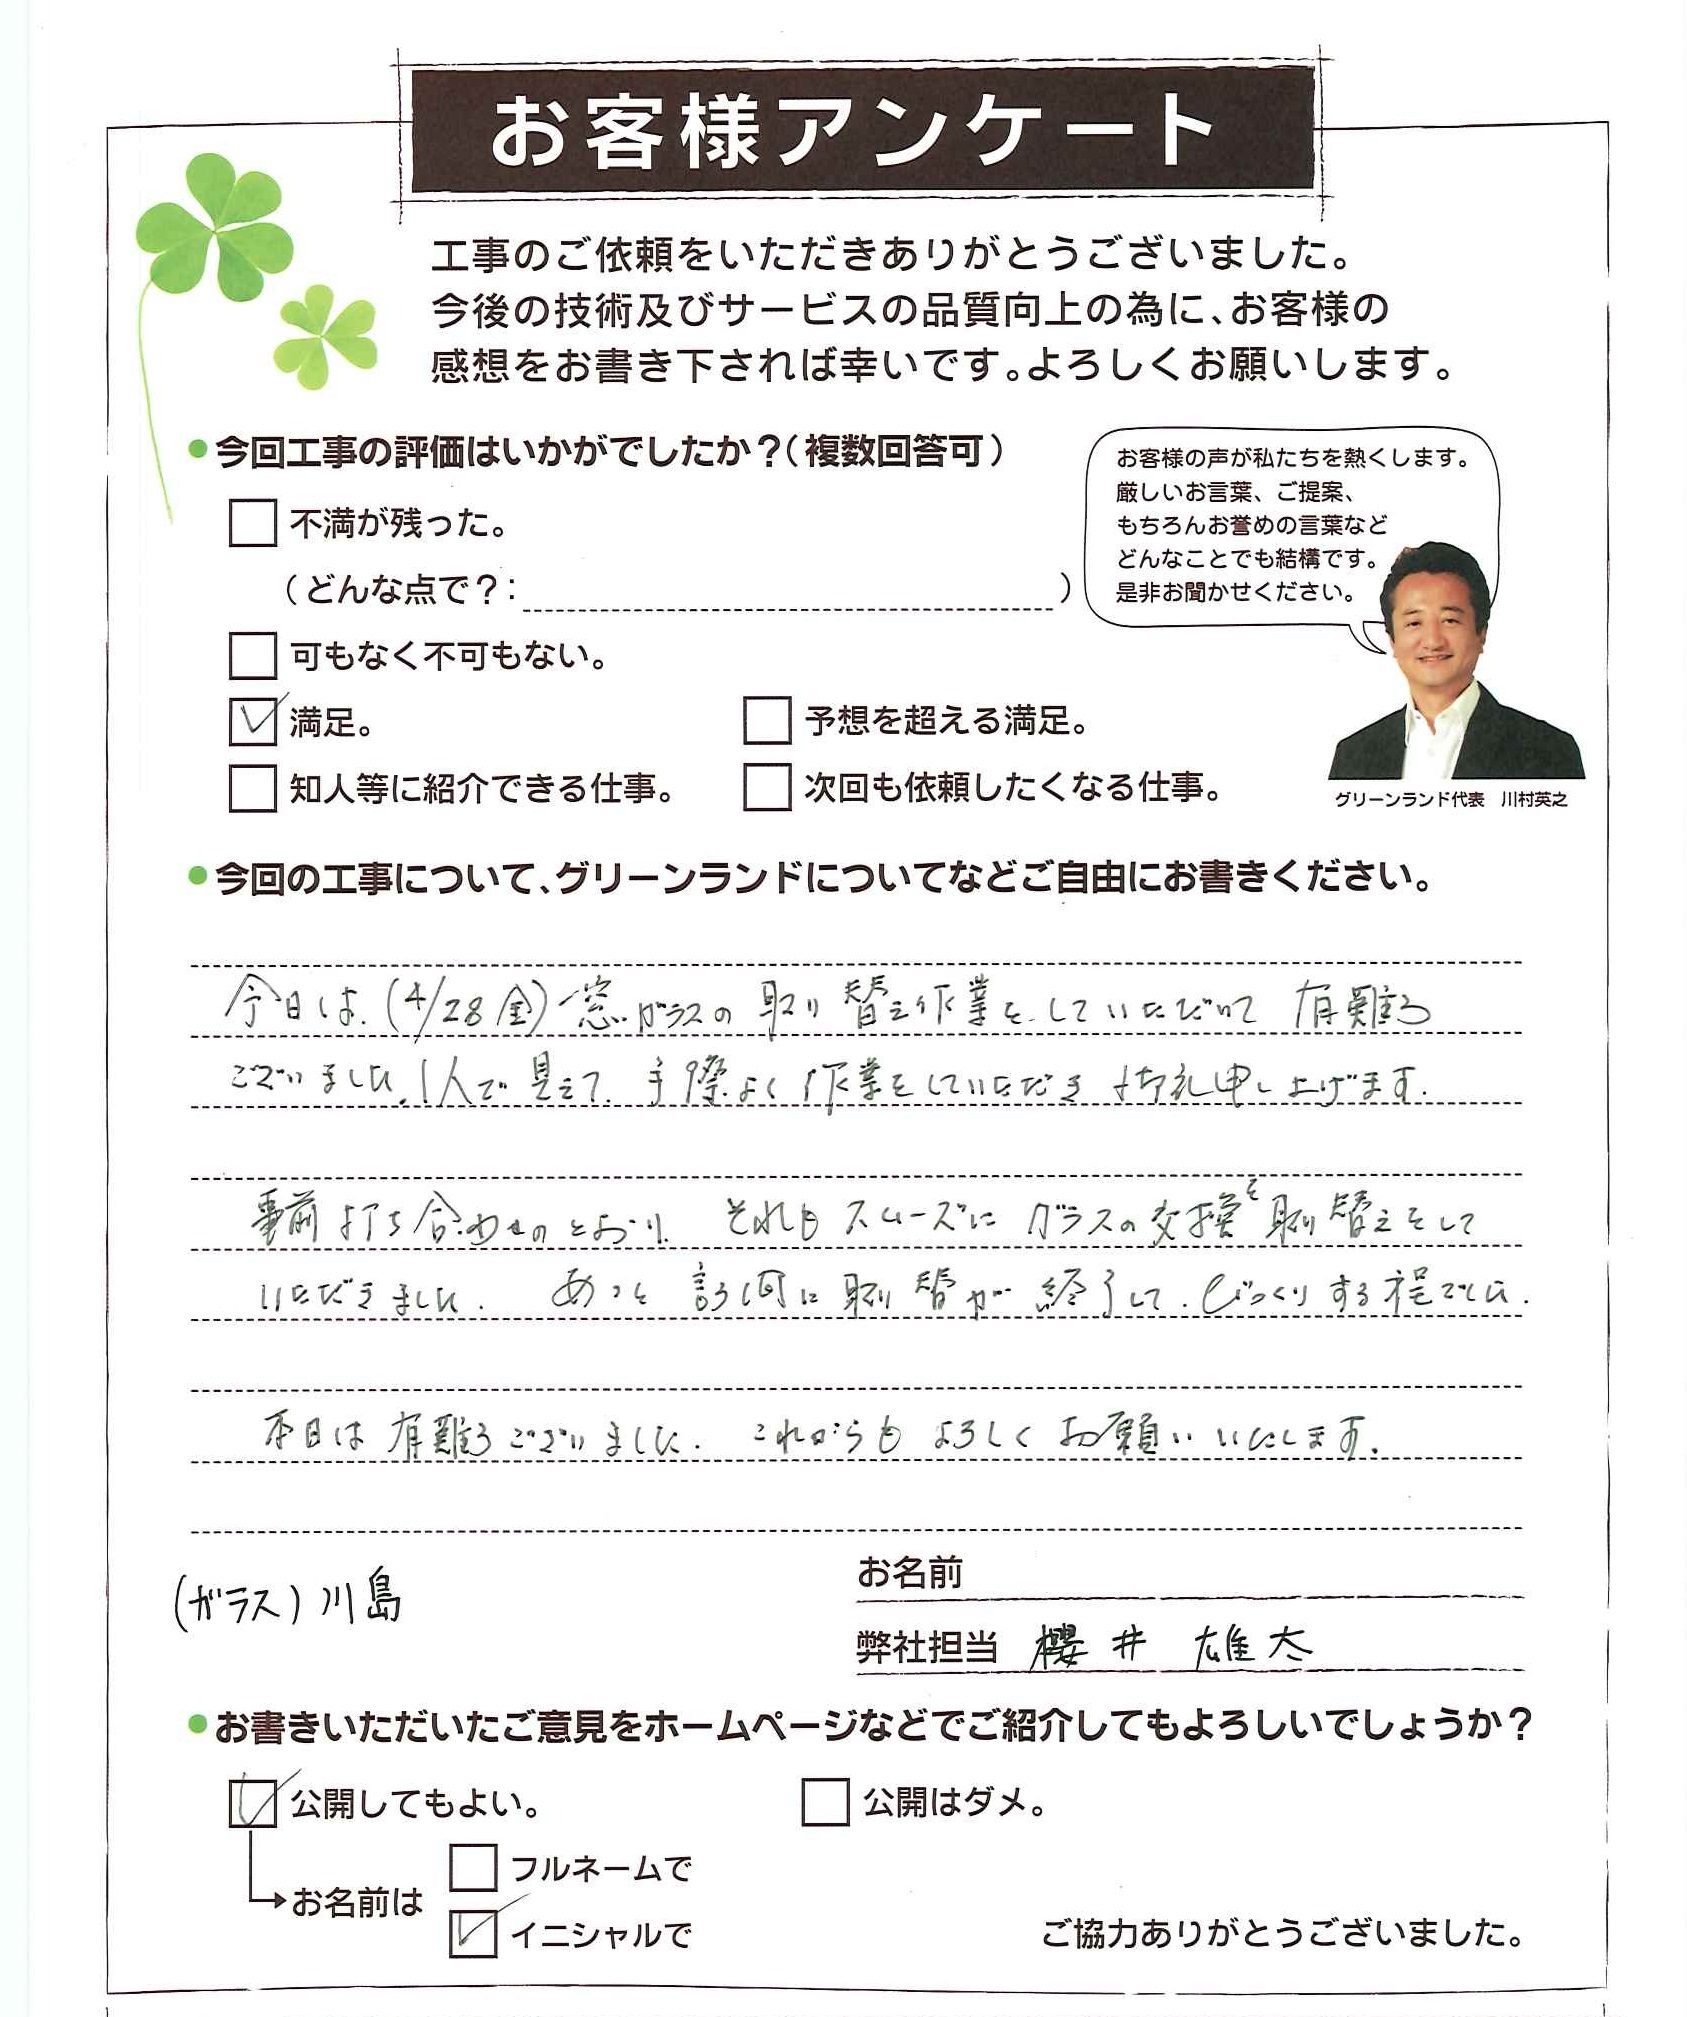 お客様アンケート
工事のご依頼をいただきありがとうございました。
今後の技術及びサービスの品質向上の為に、お客様の
感想をお書き下されば幸いです。よろしくお願いします。
●今回工事の評価はいかがでしたか？（複数回答可）
お客様の声が私たちを熱くします。
厳しいお言葉、ご提案、
もちろんお誉めの言葉など
どんなことでも結構です。
是非お聞かせください。
不満が残った。
（どんな点で？： ）
可もなく不可もない。
満足。 予想を超える満足。
知人等に紹介できる仕事。 次回も依頼したくなる仕事。
グリーンランド代表 川村英之
●今回の工事について、グリーンランドについてなどご自由にお書きください。
今日は、(4/28 金) 窓ガラスの取り替え作業をしていただいて 有難う
ございました。1人で見えて、手際よく作業をしていただき 御礼申し上げます。
事前打ち合わせのとおり、それもスムーズにガラスの交換を取り替えをして
いただきました。 あっと言う間に取り替が終了して、びっくりする程でした。
本日は有難うございました。これからもよろしくお願いいたします。
(ガラス) 川島
お名前
弊社担当 櫻井 雄太
●お書きいただいたご意見をホームページなどでご紹介してもよろしいでしょうか？
公開してもよい。 公開はダメ。
お名前は
フルネームで
イニシャルで
ご協力ありがとうございました。